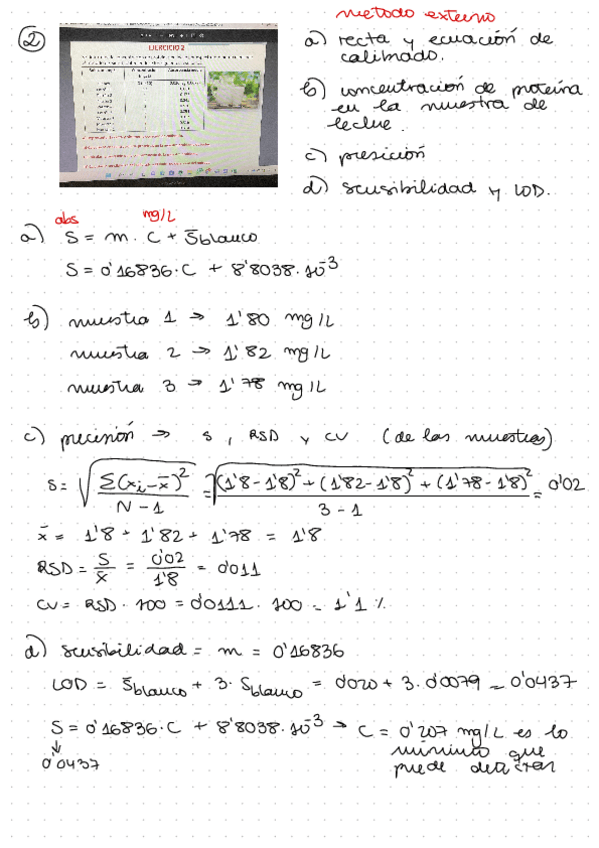 metodo externo
② EJERCICIO 2
a) recta y ecuación de calibrado.
b) concentración de proteína en la muestra de leche.
c) presición
d) sensibilidad y LOD.
abs mg/L
a) S = m · C + S̄blanco
S = 0'16836·C + 8'8038·10⁻³
b) muestra 1 → 1'80 mg/L
muestra 2 → 1'82 mg/L
muestra 3 → 1'78 mg/L
c) precisión → s, RSD y CV (de las muestras)
s = √(Σ(xᵢ - x̄)² / N - 1) = √((1'8 - 1'8)² + (1'82 - 1'8)² + (1'78 - 1'8)² / 3 - 1) = 0'02
x̄ = 1'8 + 1'82 + 1'78 = 1'8
RSD = s/x̄ = 0'02/1'8 = 0'011
CV = RSD · 100 = 0'0111 · 100 = 1'1 %
d) sensibilidad = m = 0'16836
LOD = S̄blanco + 3 · Sblanco = 0'020 + 3 · 0'0079 = 0'0437
S = 0'16836·C + 8'8038·10⁻³ → C = 0'207 mg/L es lo
↓ mínimo que
0'0437 puede detectar